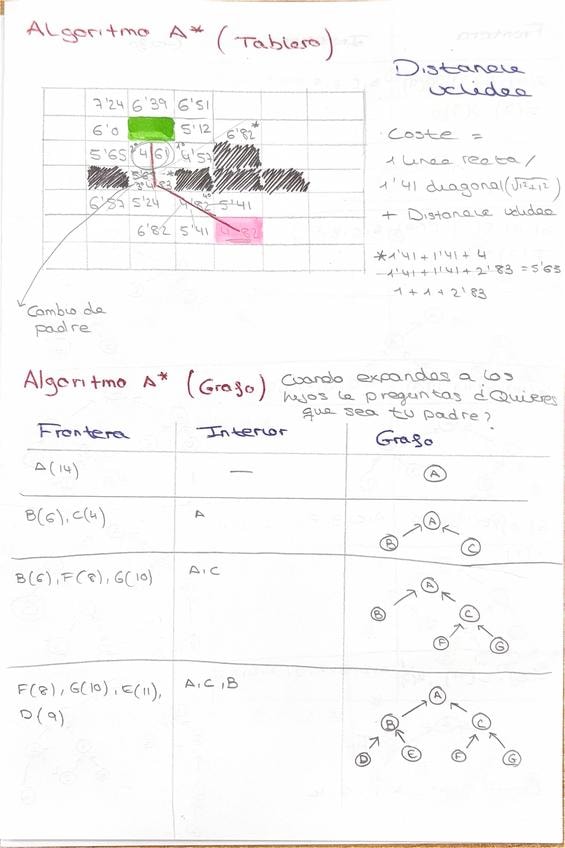 Algoritmo A* (Tablero)
Distancia
uclidea
7'24 6'39 6'51
6'0 5'12 6'82*
5'65 4'61 4'57
6'57 5'24 4'82 5'41
6'82 5'41 4'82
Coste =
1 linea recta /
1'41 diagonal (√1²+1²)
+ Distancia uclidea
*1'41 + 1'41 + 4
1'41 + 1'41 + 2'83 = 5'65
1 + 1 + 2'83
Cambio de
padre
Algoritmo A* (Grafo) Cuando expandas a los
hijos le preguntas ¿Quieres
que sea tu padre?
Frontera Interior Grafo
A(14) — A
B(6), C(4) A A
B C
B(6), F(8), G(10) A, C A
B C
F G
F(8), G(10), E(11), A, C, B A
D(9) B C
D E F G